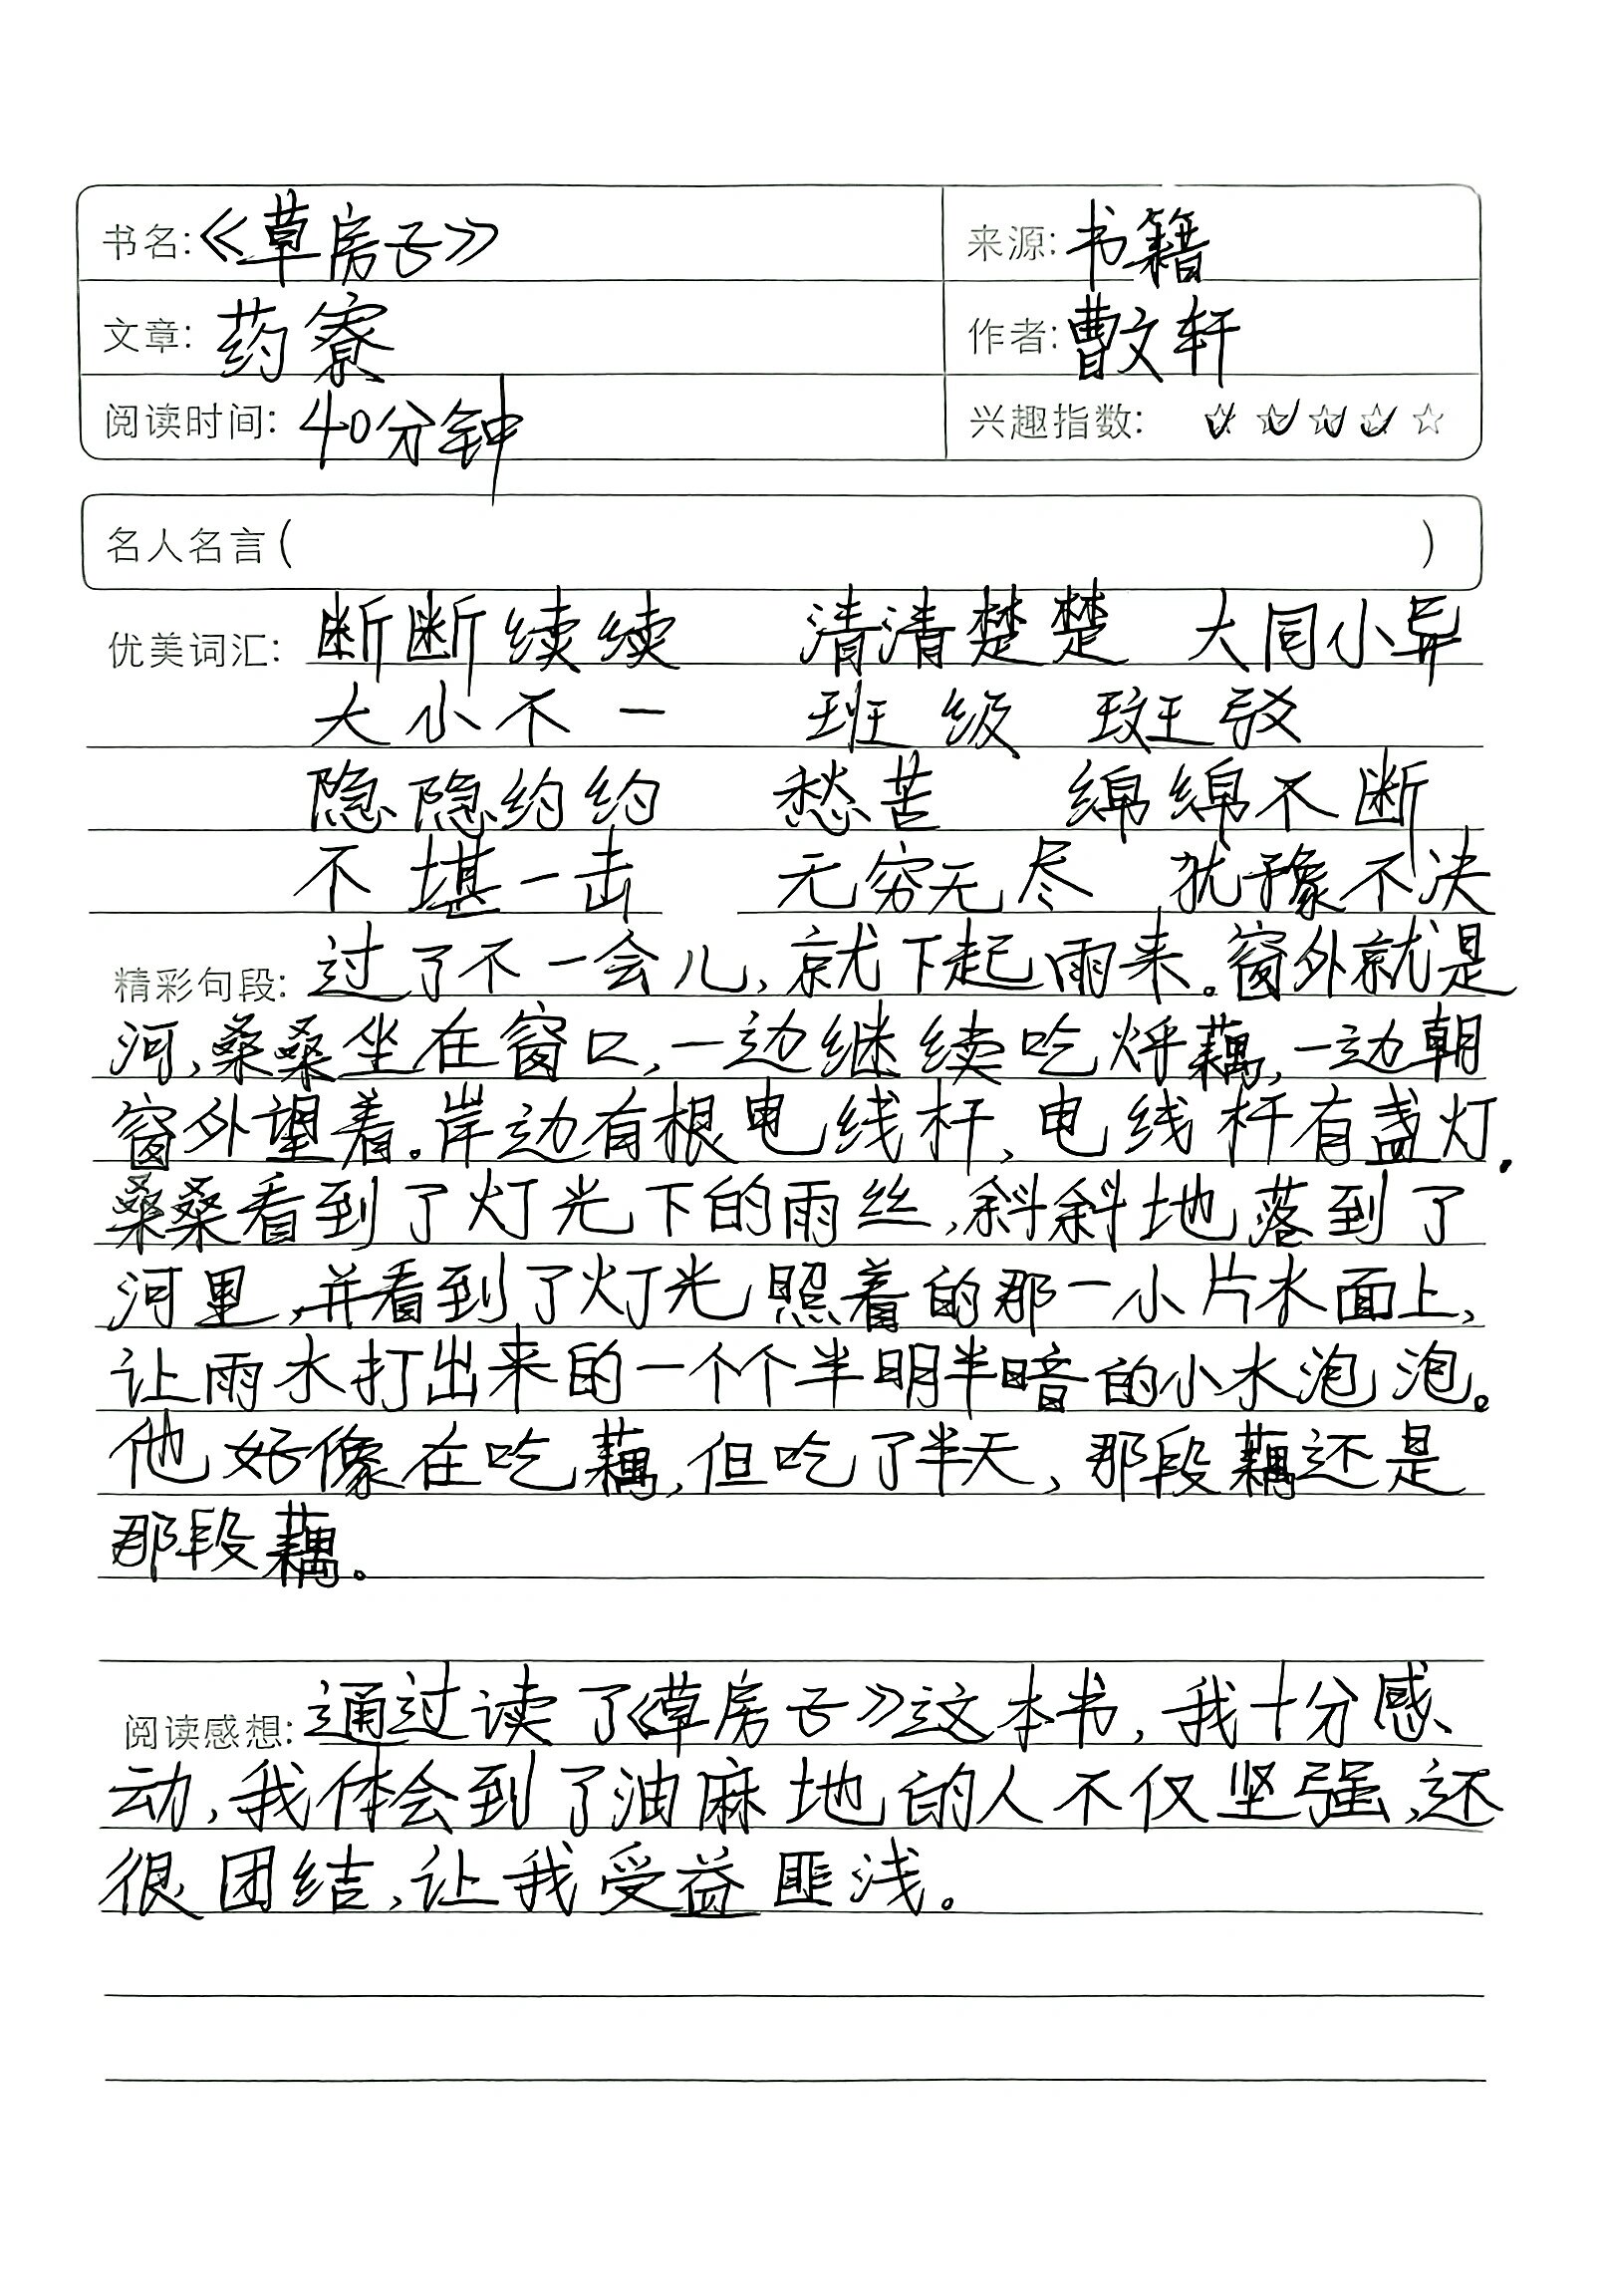 书名:《草房子》 来源:书籍
文章:药寮 作者:曹文轩
阅读时间:40分钟 兴趣指数: ☆☆☆☆☆
名人名言( )
优美词汇: 断断续续 清清楚楚 大同小异
大小不一 班级 斑驳
隐隐约约 愁苦 绵绵不断
不堪一击 无穷无尽 犹豫不决
精彩句段: 过了不一会儿,就下起雨来。窗外就是
河,桑桑坐在窗口,一边继续吃烀藕,一边朝
窗外望着。岸边有根电线杆,电线杆有盏灯.
桑桑看到了灯光下的雨丝,斜斜地落到了
河里,并看到了灯光照着的那一小片水面上,
让雨水打出来的一个个半明半暗的小水泡泡。
他好像在吃藕,但吃了半天,那段藕还是
那段藕。
阅读感想: 通过读了《草房子》这本书,我十分感
动,我体会到了油麻地的人不仅坚强,还
很团结,让我受益匪浅。